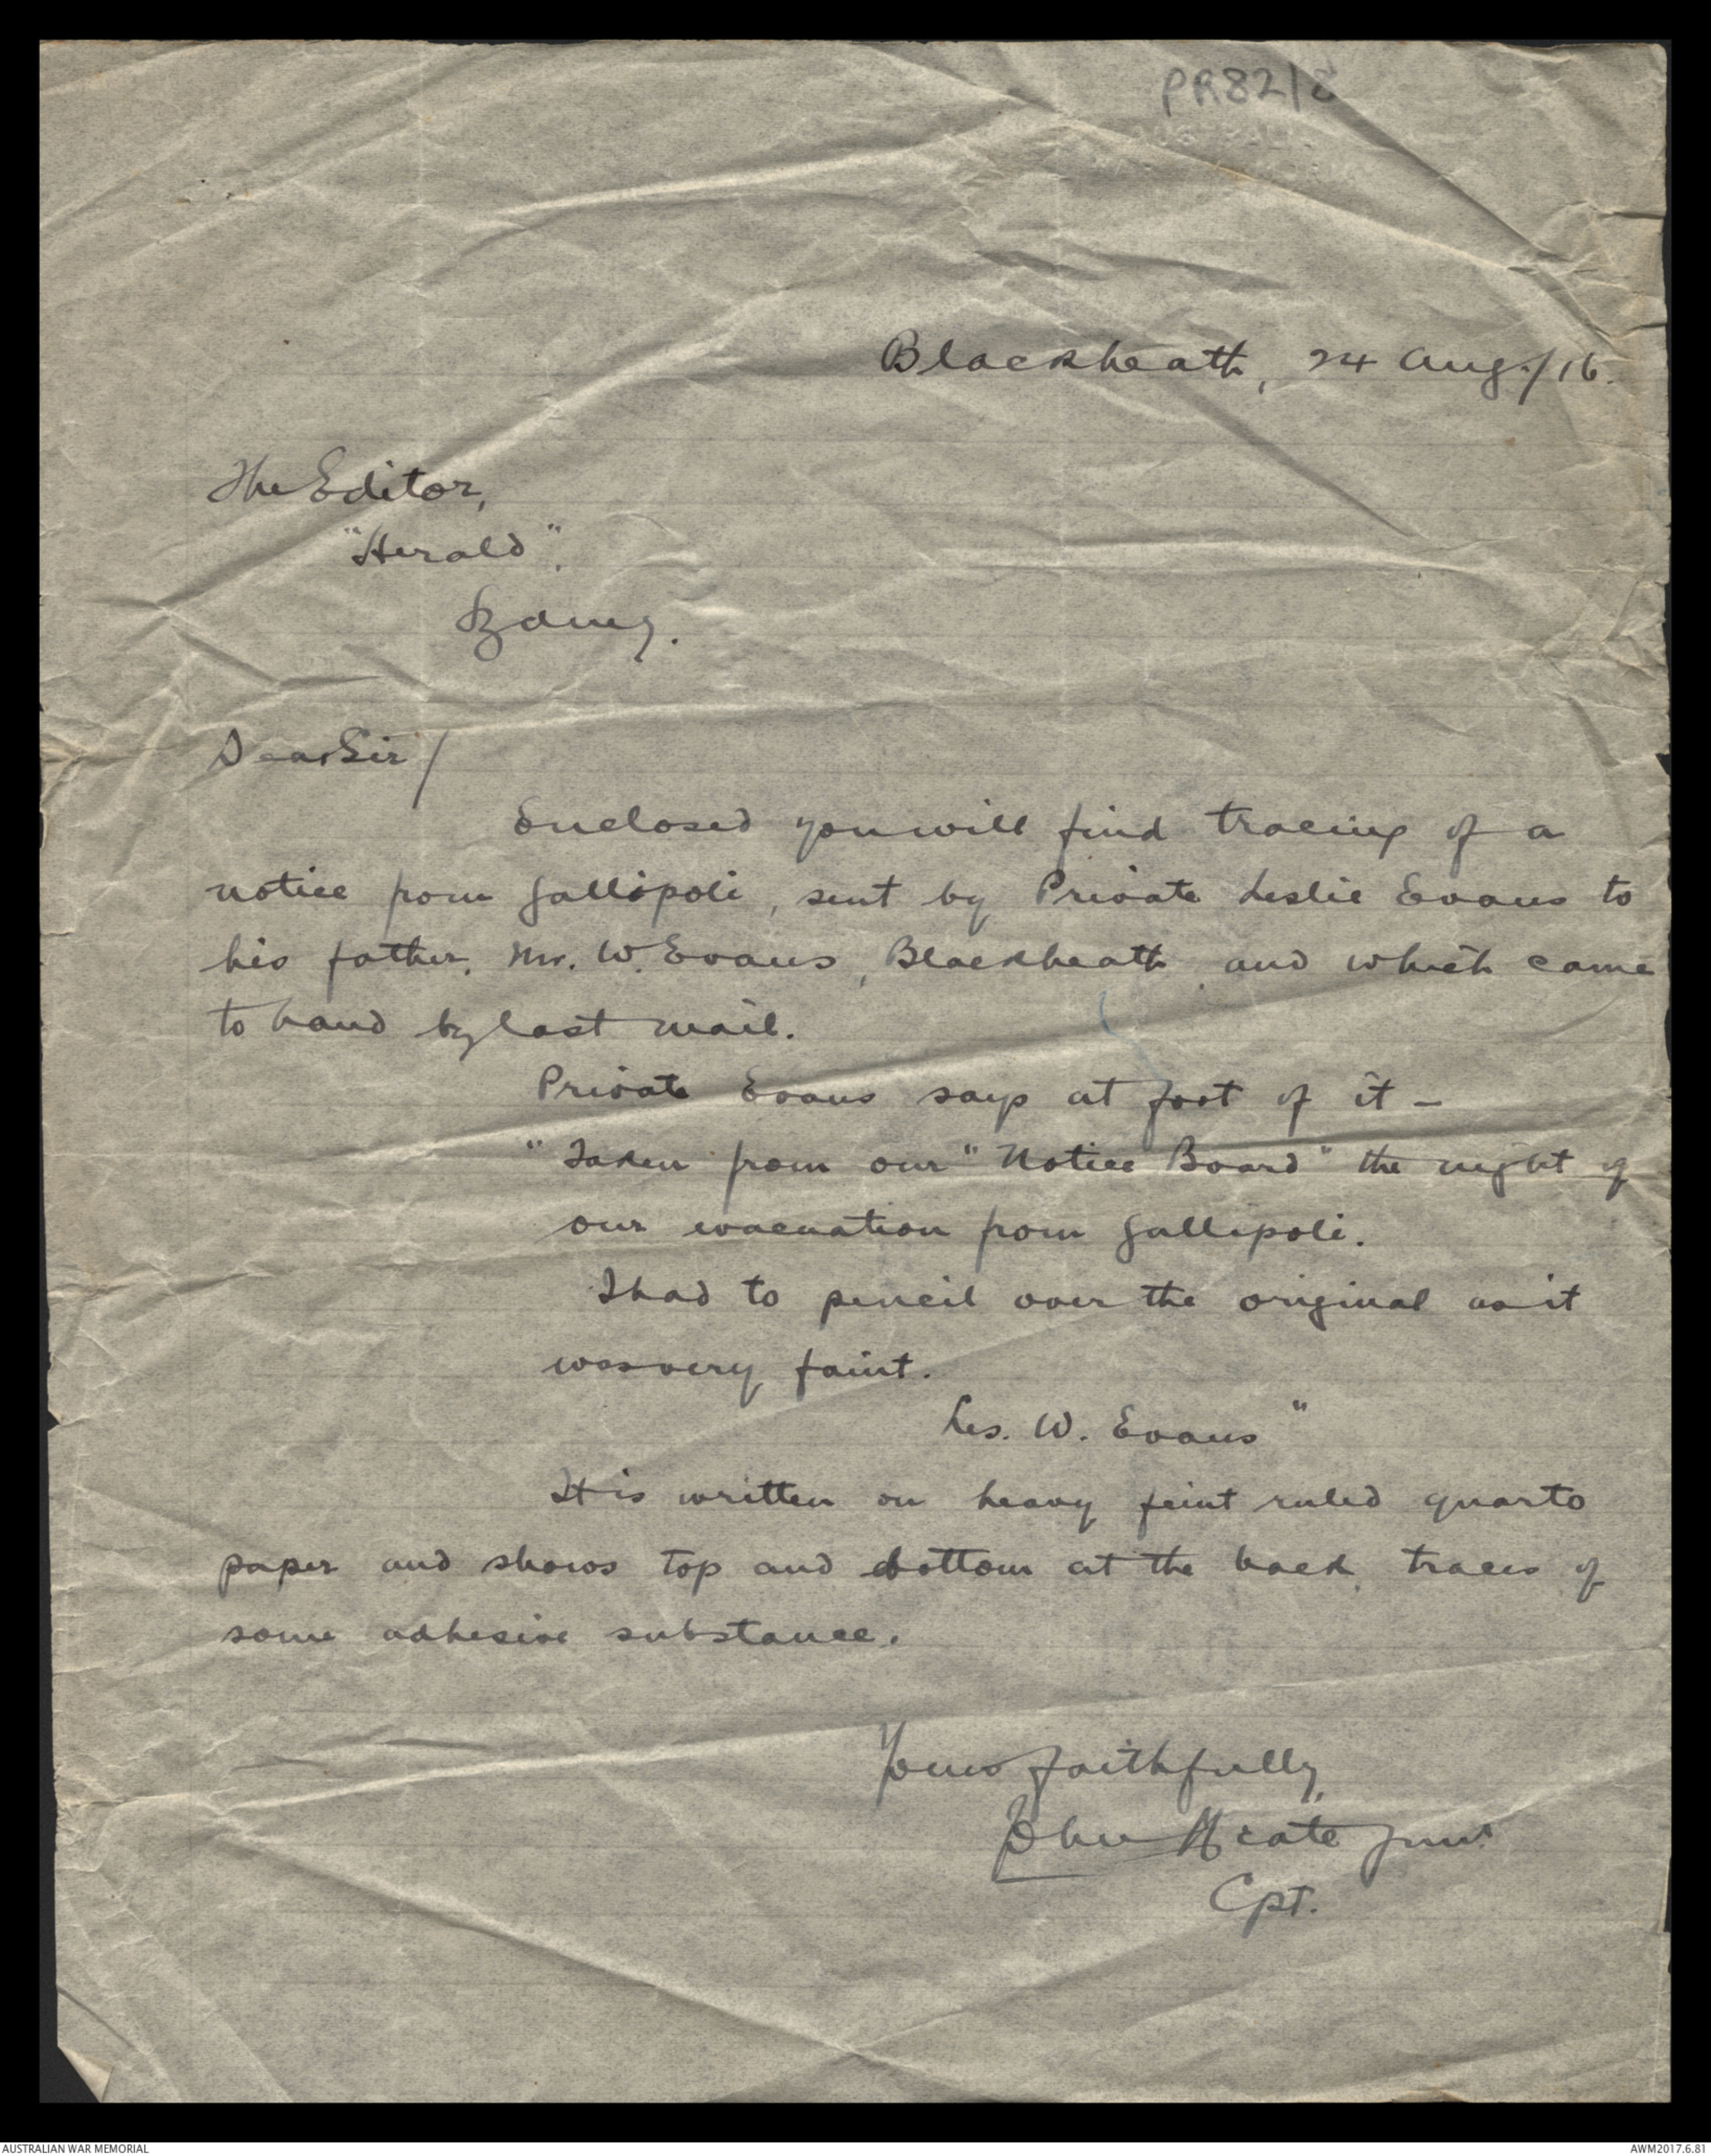 PR82/8
AUSTRALIAN
Blackheath, 24 Aug./16.
The Editor,
"Herald".
Sydney.
Dear Sir/
Enclosed you will find tracing of a
notice from Gallipoli, sent by Private Leslie Evans to
his father, Mr. W. Evans, Blackheath, and which came
to hand by last mail.
Private Evans says at foot of it –
"Taken from our "Notice Board" the night of
our evacuation from Gallipoli.
I had to pencil over the original as it
was very faint.
Les. W. Evans"
It is written on heavy feint ruled quarto
paper and shows top and bottom at the back, traces of
some adhesive substance.
Yours faithfully,
John Junr.
Cpt.
AUSTRALIAN WAR MEMORIAL
AWM2017.6.81